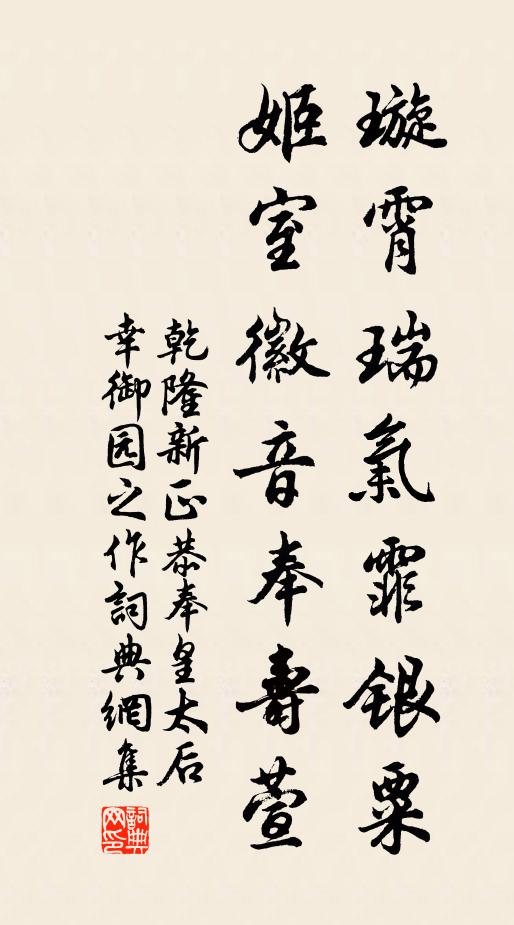 璇霄瑞氣霏銀粟
姬室徽音奉壽萱
乾隆新正恭奉皇太后
幸御园之作詞典網集
詞典网印